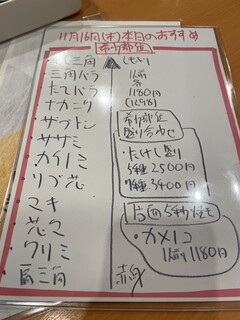 11月16日(木)本日のおすすめ
希少部位
三角バラ
たてバラ
ナカニク
ザブトン
ササミ
カイノミ
リブ芯
マキ
芯々
クリミ
肩三角
1人前
各
1180円
(1298)
希少部位
盛り合わせ
・たけし盛り
5種 2500円
7種 3400円
・カメノコ
1人前 1180円
赤身